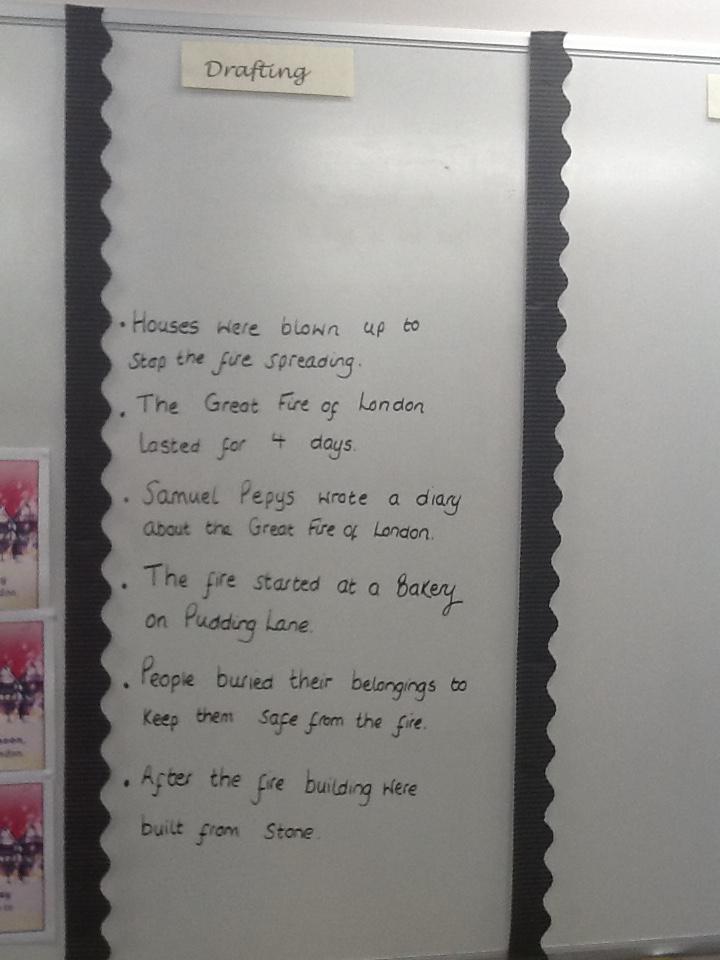 Drafting
• Houses were blown up to
stop the fire spreading.
• The Great Fire of London
lasted for 4 days.
• Samuel Pepys wrote a diary
about the Great Fire of London.
• The fire started at a Bakery
on Pudding Lane.
• People buried their belongings to
keep them safe from the fire.
• After the fire building were
built from stone.